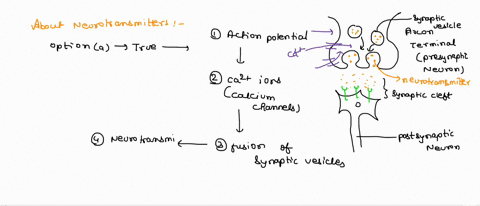 About Neurotransmitters :-
option (a) → True →
① Action potential
② Ca²⁺ ions
(calcium channels)
③ fusion of
synaptic vesicles
④ Neurotransmi
Ca²⁺
synaptic vesicle
Axon
Terminal
(presynaptic
Neuron)
neurotransmitter
synaptic cleft
postsynaptic
Neuron